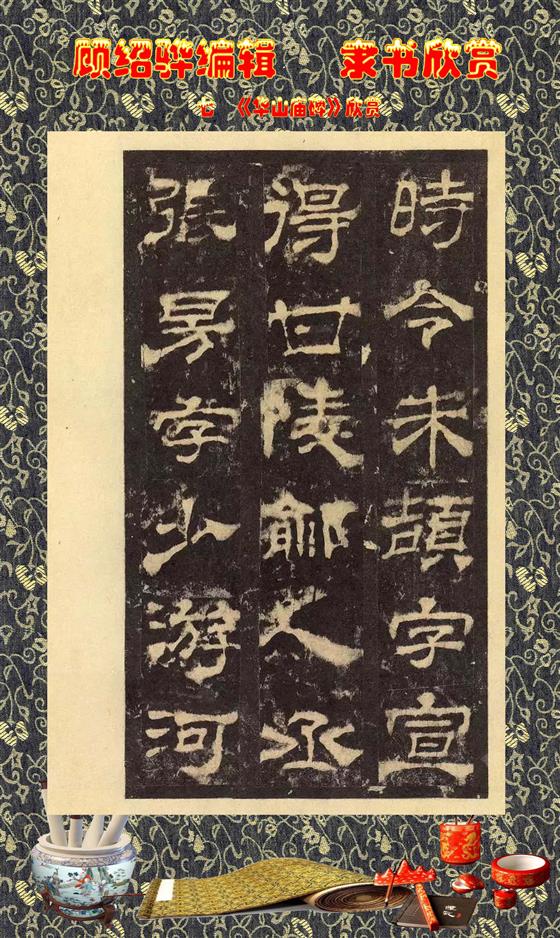 顾绍骅编辑 隶书欣赏
《华山庙碑》欣赏
時令朱頡字宣
得甘陵鄃人丞
張昉字少游河